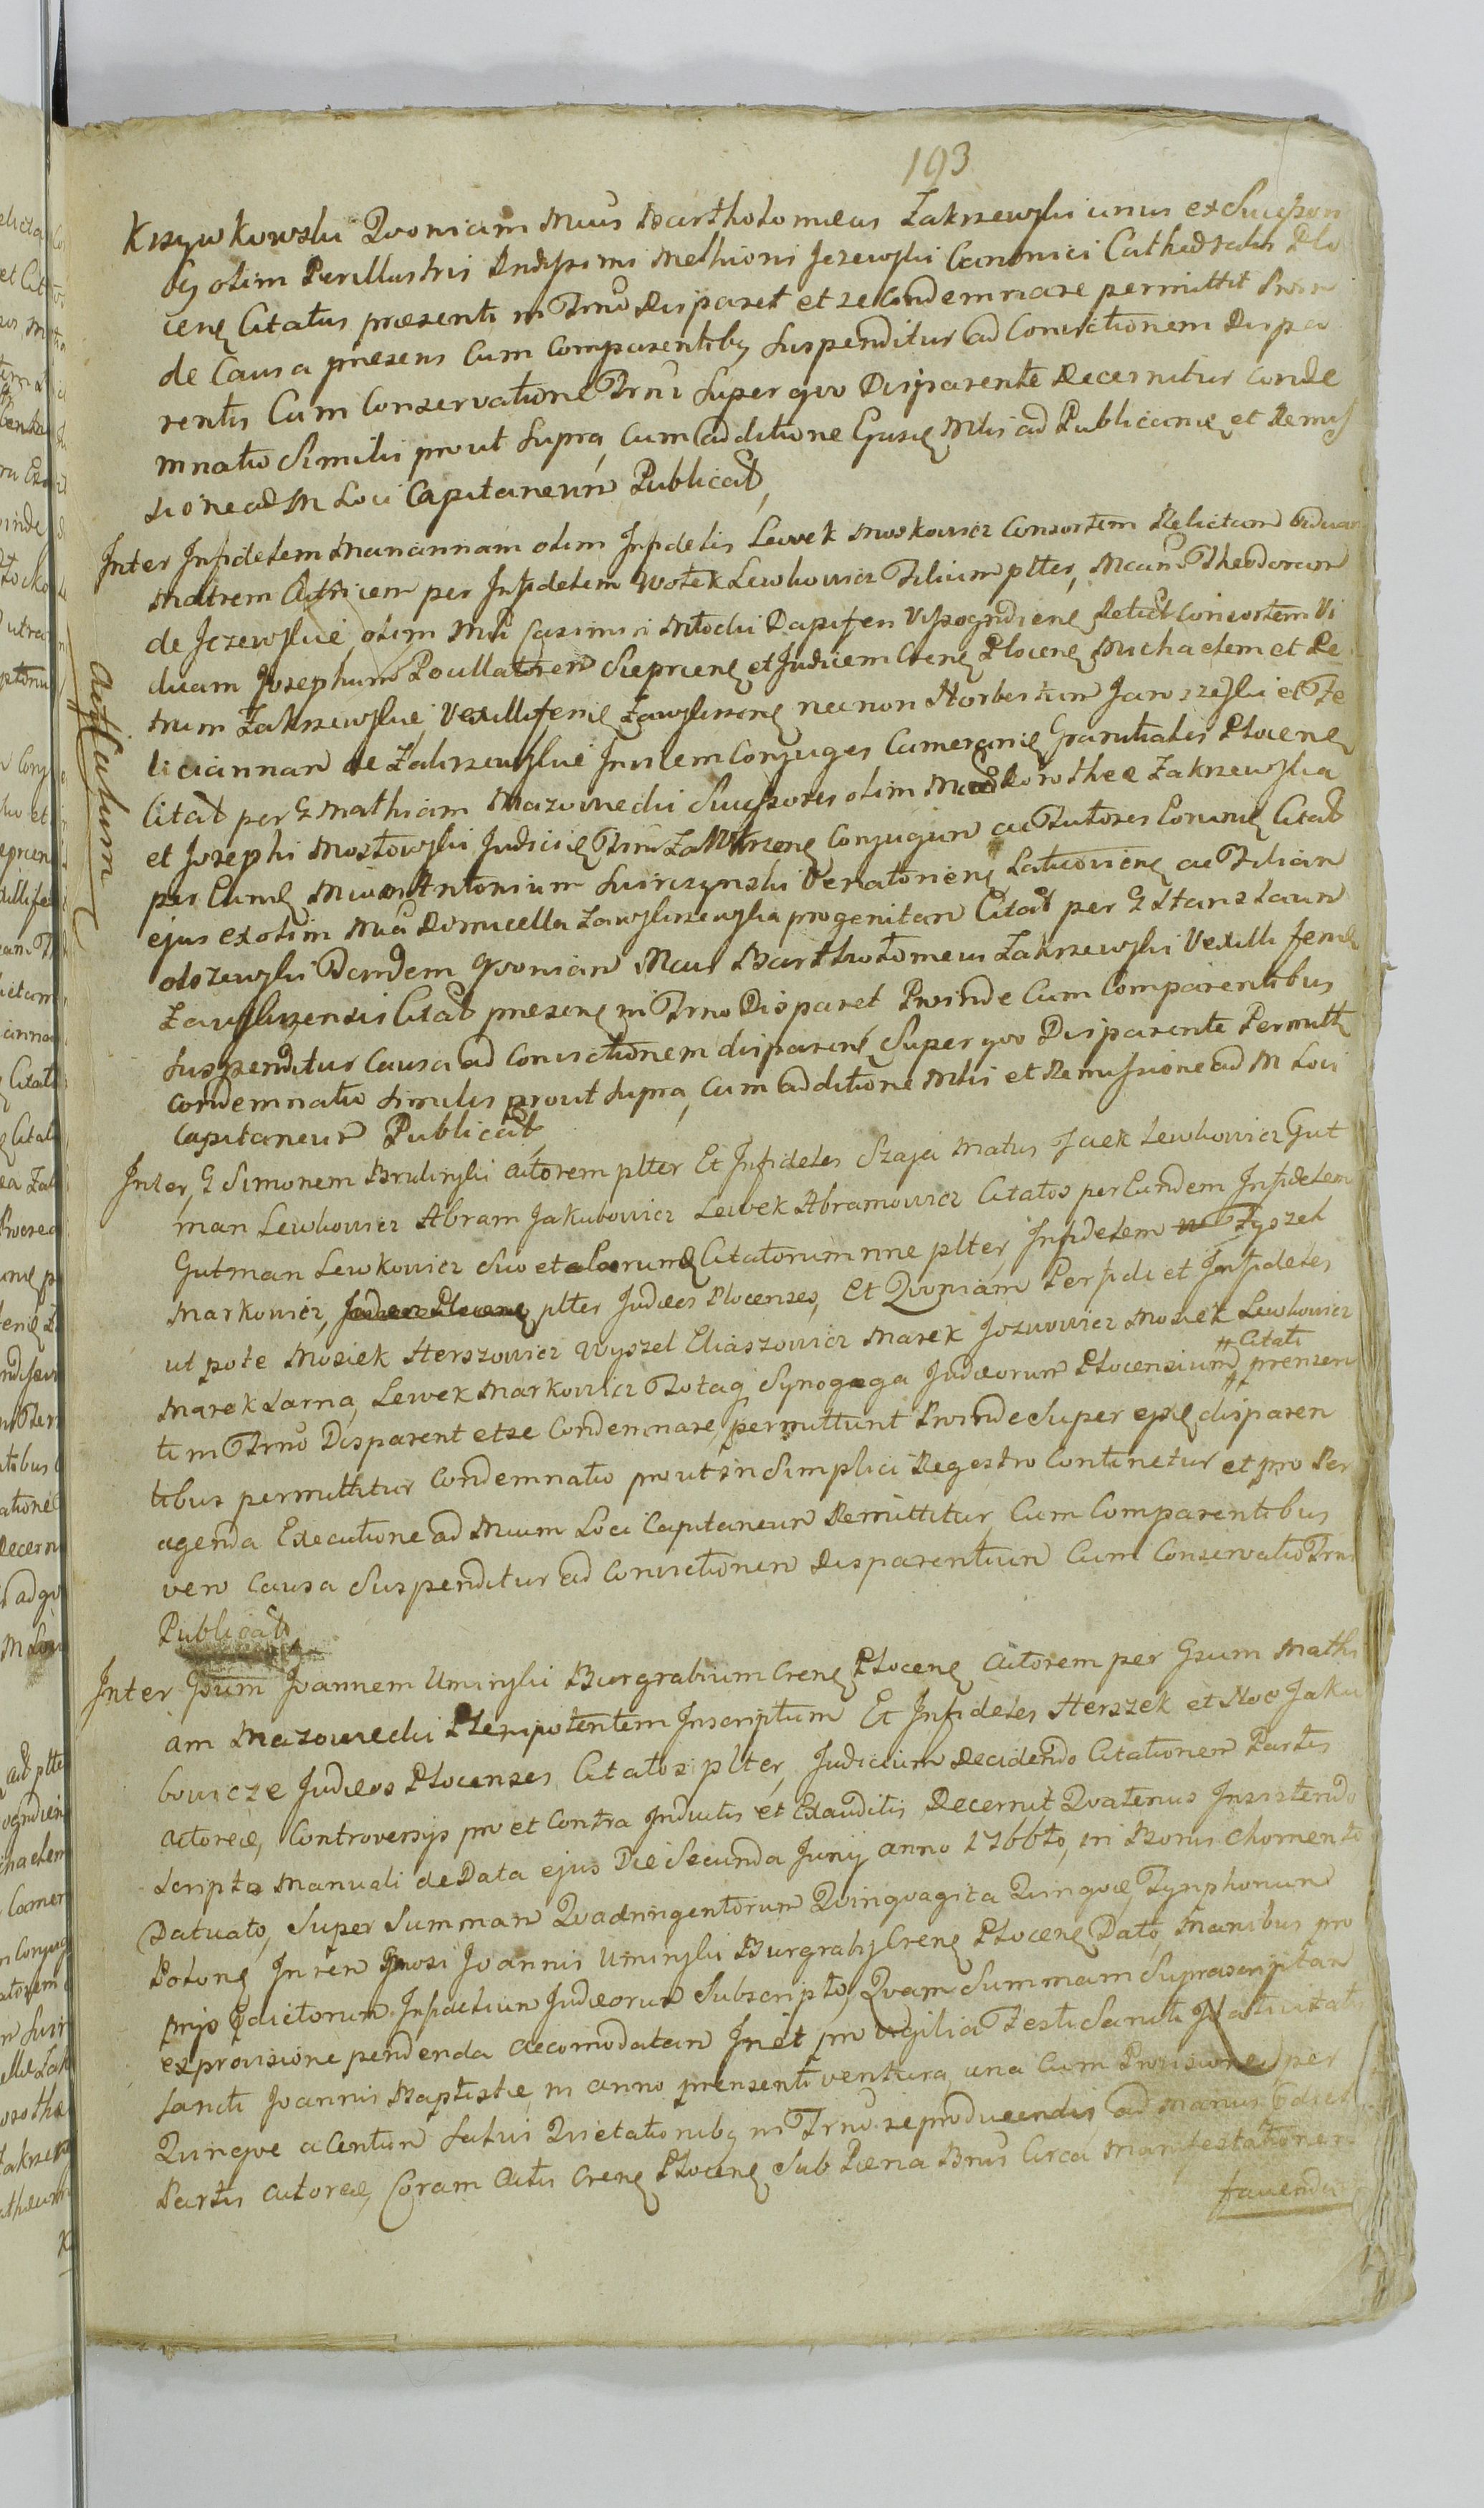 193
Krzywkowski Qvoniam Mcus Bartholomeus Zakrzewski unus ex Succhssori
bg olim Perillustris Rndissimi Melhioris Jezewski Canonici Cathedralis Plo
cenę Citatus præsenti in Trno Disparet et se Condemnare permittit Proin
de Causa præsens Cum Comparentibg Suspenditur ad Convictionem dispa
rentis Cum Conservatione Trni Super qvo Disparente Decernitur Conde
mnatio Similis prout Supra, Cum additione Gnsę Mtis ad Publicanę et Remis
sione ad M Loci Capitaneum Publicat,
Inter Infidelem Mariannam olim Infidelis Lewek Moskowicz Consortem Relictam Viduam
Matrem Actricem per Infidelem Wolek Lewkowicz Filium plter, Mcam Theodoram
de Jezewskie, olim Mci Casimiri Mlocki Dapiferi Vissogrdienę Relict Consortem Vi
duam Josephum Pocillatorem Sieprcenę et Judicem Crenę Plocenę Michaelem et Pe
trum Zakrzewskie, Vexilliferię Zawskrzenę necnon Norbertum Jaroszeski et Fe
liciannam de Zakrzewskie Invicem Conjuges Camerarię Granitialis Plocenę
Citat per G Mathiam Mazowiecki Successores olim Mcæ Dorotheæ Zakrzewska
et Josephi Mostowski Judicię Trni Zawkrzenę Conjugum ac Tutores Eorumę Citat
per Eumdę Mcum Antonium Swirczynski Venatorienę Laticovienę ac Filiam
ejus ex olim Mca Domicella Zawskrzewska progenitam Citat per G Stanislaum
Olszewski Tandem qvoniam Mcus Bartholomeus Zakrzewski Vexilli ferię
Zawskrzensis Citat præsenę in Trno Disparet Proinde Cum Comparentibus
Suspenditur Causa ad Convictionem disparenę Super qvo Disparente Permitt
Condemnatio Similis prout Supra, Cum additione Mtis et Remissione ad M Loci
Capitaneum Publicat,
Actfatum
Inter, G Simonem Brulinski Actorem plter Et Infideles Szaja Matus Jaek Lewkowicz Gut
man Lewkowicz Abram Jakubowicz Lewek Abramowicz Citatos per Eundem Infidelem
Gutman Lewkowicz Suo et aliorumę Citatorum nne plter, Infidelem Fyszel
Markowicz, plter Judæos Plocenses, Et Qvoniam Perfidi et Infideles
ut pote Mosiek Herszowicz Wyszel Eliaszowicz Marek Jozwowicz Mosiek Lewkowicz
Marek Larna, Lewek Markowicz Totaq Synogaga Judæorum Plocensium # Citati # præsen
ti in Trno Disparent et se Condemnare permittunt Proinde Super ejsdę disparen
tibus permittitur Condemnatio prout in Simplici Regestro Continetur et pro Per
agenda Executione ad Mcum Loci Capitaneum Remittitur, Cum Comparentibus
vero Causa Suspenditur ad Convictionem Disparentium Cum Conservatio Trni
Publicat,
Inter Gsum Joannem Uminski Burgrabium Crenę Plocenę Actorem per Gsum Mathi
am Mazowiecki Plenipotentem Inscriptum Et Infideles Herszek et Noe Jaku
bowicze Judæos Plocenses Citatos plter, Judicium Decidendo Citationem Partis
Actoreæ, Controversijs pro et Contra Inductis et Exauditis Decernit Qvatenus Insistendo
Scripto Manuali de Data ejus Die Secunda Junij Anno 1766to, in Bonis Chomento
Datuato, Super Summam Qvadringentorum Qvinqvagita Qvinqve Tynphonum
Polonę In rem Gnrosi Joannis Uminski Burgrabij Crenę Plocenę Dato, Manibus pro
prijs Edictorum Infidelium Judæorum Subscripto, Qvam Summam Suprascriptam
ex provisione pendenda Accomodatam Iniet pro vigilia Festi Sancti Nativitatis
Sancti Joannis Baptistæ, in anno prensenti ventura, una Cum Provisione per
Qvinqve a Centum Salvis Qvietationibg in Trno reproducendis, ad manus Edict
Partis Actoreæ, Coram Actis Crenę Plocenę Sub Pæna Bnis Circa Manifestationem
faciendu